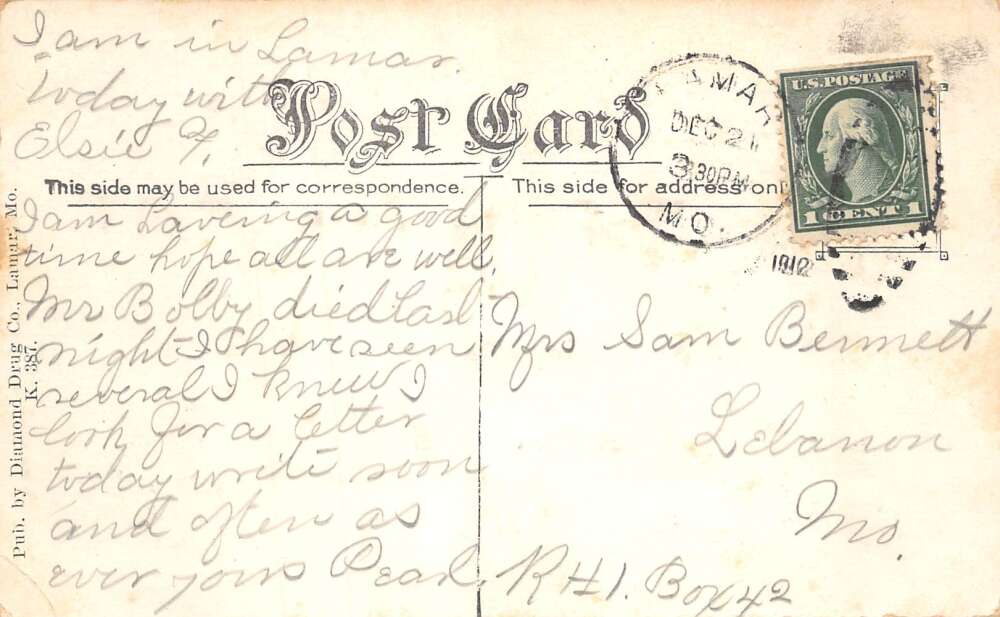 I am in Lamar.
today with
Elsie F.
Post Card
This side may be used for correspondence.
This side for address only
I am havering a good
time hope all are well.
Mr Bolby died last
night I have seen
several I knew I
look for a letter
today write soon
and often as
ever yours Pearl.
Pub. by Diamond Drug Co., Lamar, Mo.
K. 387.
LAMAR
DEC 21
3 30 PM
MO.
1912
U.S. POSTAGE
1 CENT 1
Mrs Sam Bennett
Lebanon
Mo.
R H 1. Box 42